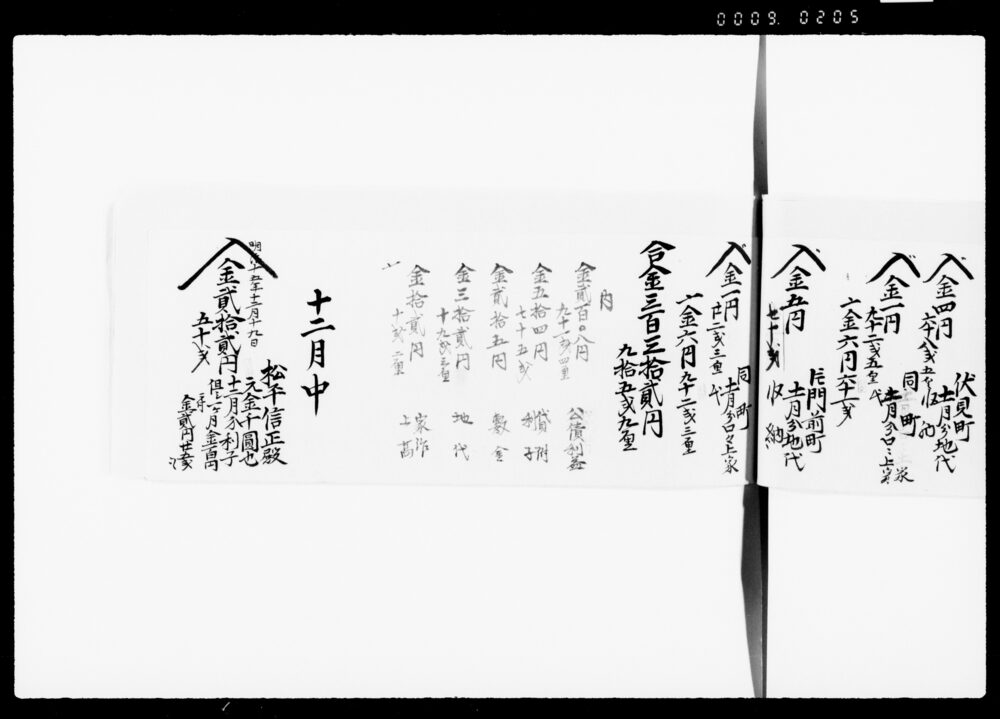 0009. 0205
金四円
六十八戔五厘
伏見町
十一月分地代
収納
金一円
九十二戔五厘
同町
十一月分口々上家
〆金六円六十一戔
金五円
七十戔
片門前町
十一月分地代
収納
金一円
廿二戔三厘
同町
十一月分口々上家
〆金六円九十二戔三厘
合金三百三拾貳円
九拾五戔九厘
内
金貳百〇八円
九十一戔四厘
公債利益
金五拾四円
七十五戔
貸附
利子
金貳拾五円
敷金
金三拾貳円
十九戔三厘
地代
金拾貳円
十戔二厘
家作
上高
十二月中
明治十五年十二月十九日
金貳拾貳円
五十戔
松平信正殿
元金千圓也
十一月分利子
但一ヶ月金百円ニ付
金貳円廿五戔